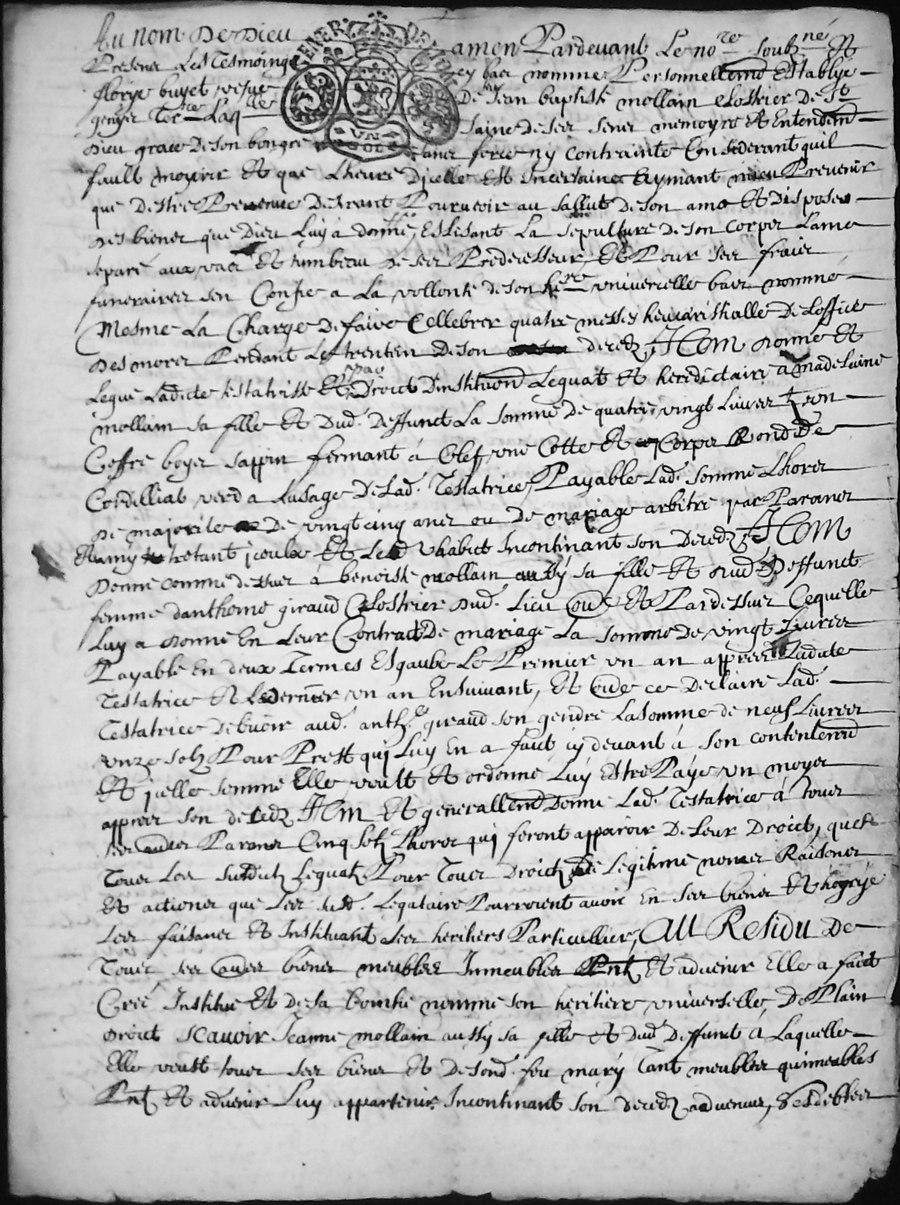 Au nom De Dieu amen Pardevant Le no.re soubz.né Et
Presens Les Tesmoings ey bas nommes Personnellemt Establye
florye buyet vefve De Jean baptiste mollain Clostrier de St
genyes Ter.re Laq.lle saine de ses sens memoyre Et Entendemt
Dieu grace De son bongré sans force ny contrainte Considerant quil
fault mourir Et que Lheure Dicelle Est Incertaine Aymant mieu Prevenir
que destre Prevenue Desirant Pourvoir au sallut de son ame Et disposer
des biens que Dieu Luy a donné Eslisant La sepulture de son Corps Lame
separé aux vas Et tumbeau de ses Predecesseurs, Et Pour ses frais
funeraires sen Confie a La vollonté de son he.re universelle bas nommé
Mesme La Charge de faire Cellebrer quatre messes Les trentein de son
des morts Pendant decedz Item donne Et
Legue Ladicte testatrisse Et Par Droict Dinstituon Leguat Et hereditaire a madeleine
mollain sa fille Et dud. deffunct La somme de quatre vingt Livres & son
Coffre boys sappin fermant a Clef une Cotte Et Corps Rond de
Cordelliat verd a Lusage de Lad. Testatrice, Payable Lad. somme Lhors
De majorité De vingt cinq ans ou de mariage arbitré par Parans
Item
Donne comme dessus à benoiste mollain aussy sa fille Et dud. deffunct
femme danthoine giraud Clostrier dud. Lieu oultre Et Pardessus Cequelle
Luy a donné En Leur Contract De mariage La somme De vingt Livres
Payable En deux Termes Esgaulx Le Premier un an appres Ladicte
Testatrice Et Le dernier un an Ensuivant, Et ce declaire Lad.
Testatrice debvoir aud. anth.e giraud son gendre La somme de neuf Livres
unze solz Pour Prest qui Luy En a faict cy devant à son contentemt
Et jcelle somme Elle veult Et ordonne Luy Estre Paye un moys
appres son decedz Item Et generallemt Donne Lad. Testatrice à tous
ses aultres Parans Cinq solz Lhors qui feront apparoir De Leur Droict, que
Tous Les susdictz Leguatz Pour Tous Droictz de Legitime noms Raisons
Et actions que Les susd. Legataires Pourroient avoir En ses biens Et hoyrie
Les faisans Et Instituant ses heritiers Particulliers, Au Residu De
Tous ses aultres biens meubles Inmeubles Pntz Et advenir Elle a faict
Creé Institué Et de sa bouche nommé son heritiere universelle De Plain
droict scavoir Jeanne mollain aussy sa fille Et dud. Deffunct à Laquelle
Elle veult tous ses biens Et de sond. feu mary Tant meubles quimeubles
Pntz Et advenir Luy appartenir Incontinant son decedz advenus, Ses debtes